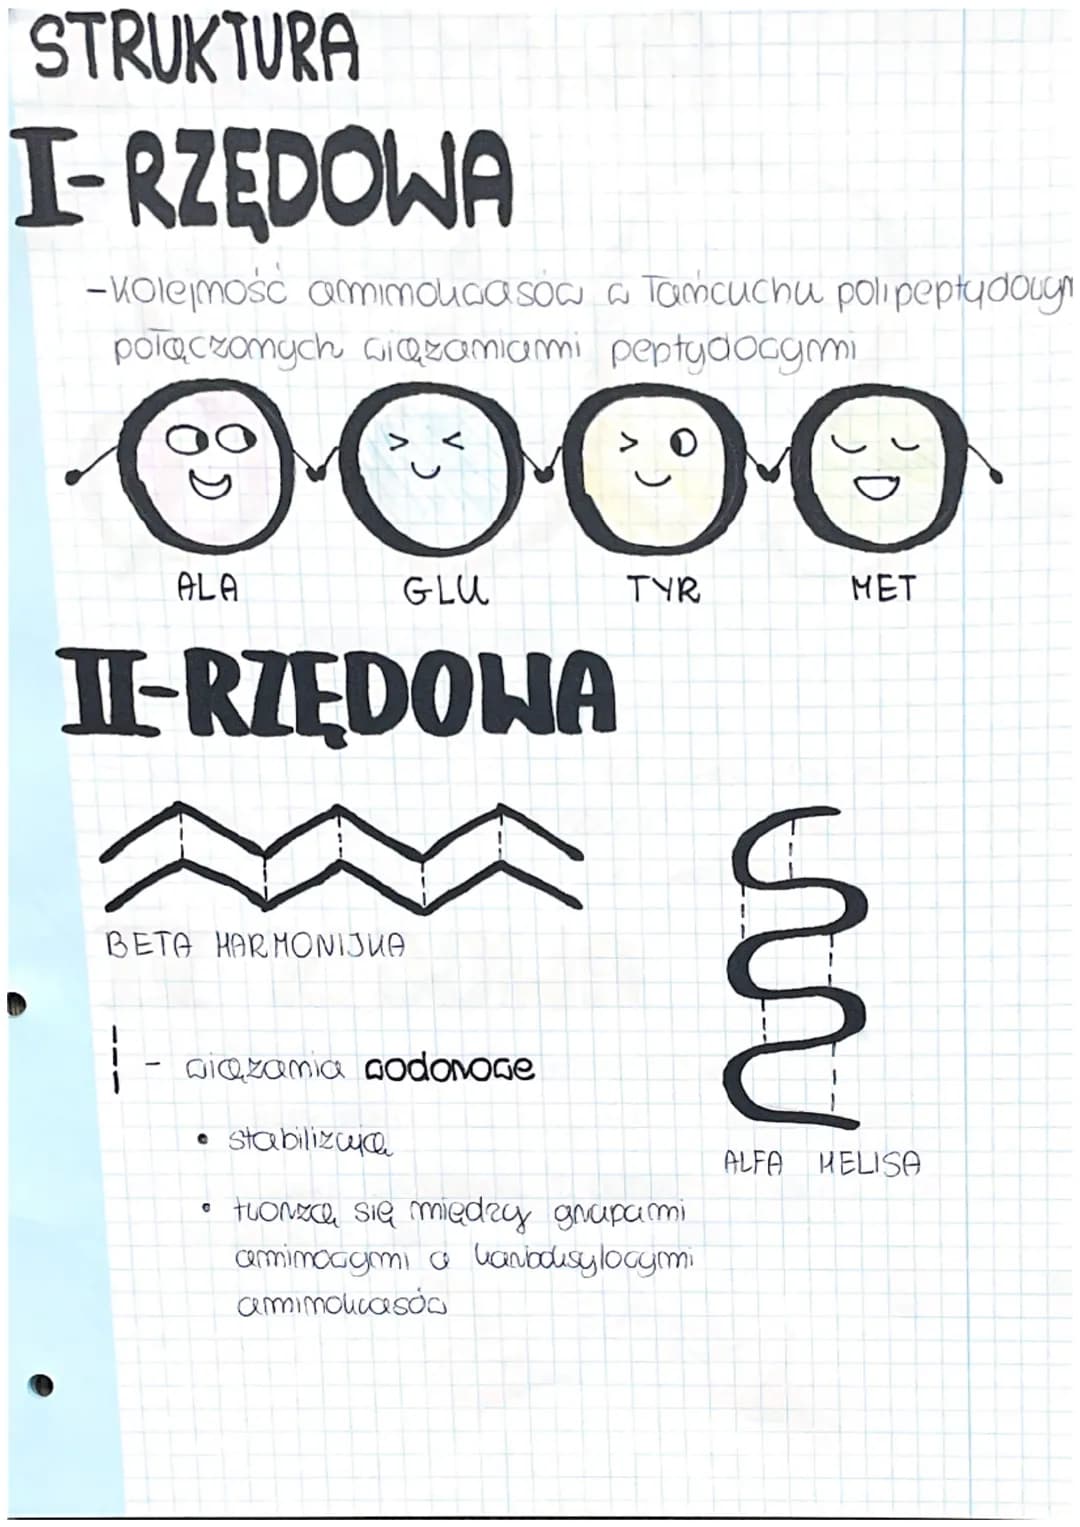 STRUKTURA
I-RZĘDOWA
-Kolejność aminokwasów w łańcuchu polipeptydowym
połączonych wiązaniami peptydowymi
ALA GLU TYR MET
II-RZĘDOWA
BETA HARMONIJKA
- wiązania wodorowe
• stabilizują
• tworzą się między grupami
aminowymi a karboksylowymi
aminokwasów
ALFA HELISA